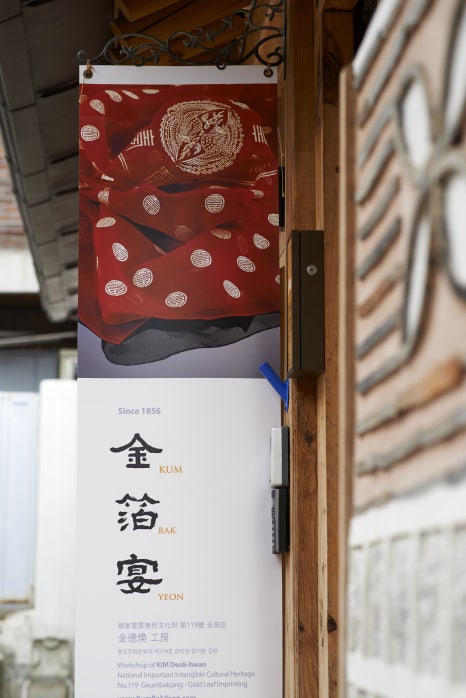 Since 1856
金
KUM
箔
BAK
宴
YEON
國家重要無形文化財 第119號 金箔匠
金德煥 工房
중요무형문화재 제119호 금박장 김덕환 공방
Workshop of KIM Deok-hwan
National Important Intangible Cultural Heritage
No.119 Geumbakjang · Gold Leaf Imprinting